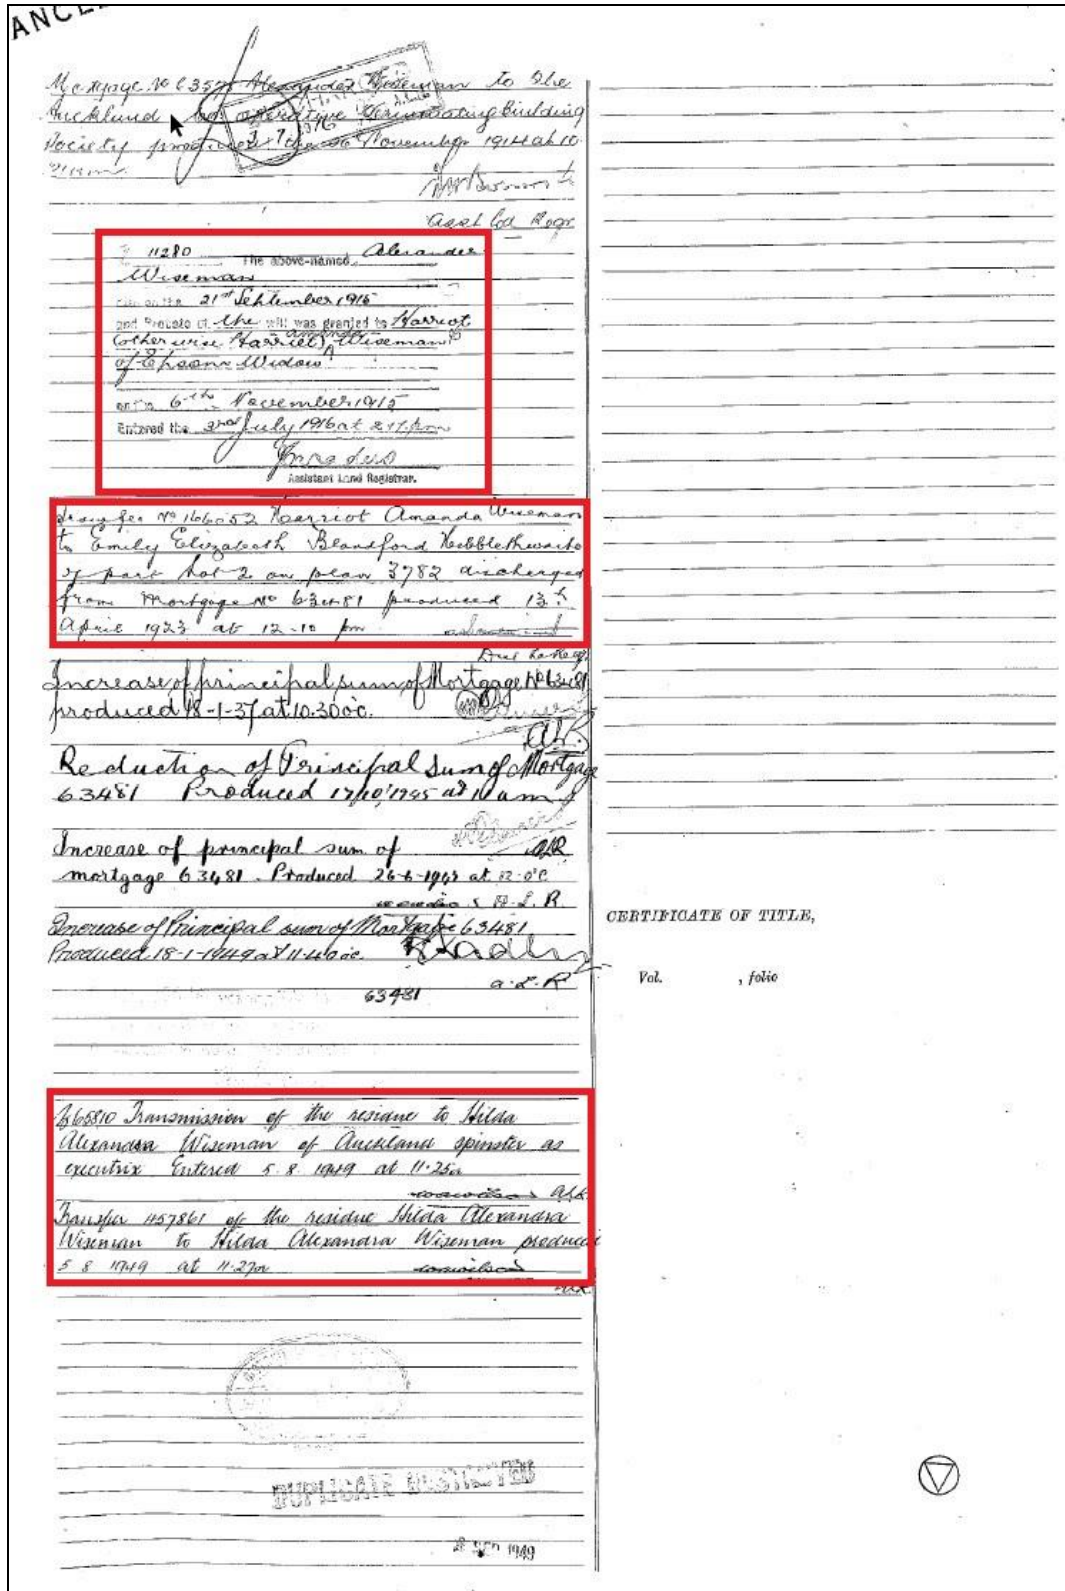 ANCEL
Mortgage No 6357 Alexander Wiseman to The
Auckland Co operative Terminating Building
Society produced the 26 November 1914 at 10
Asst Ld Regr
11280 The above-named Alexander
Wiseman
died on the 21st September 1915
and Probate of the will was granted to Harriot
(otherwise Harriet) Amanda Wiseman
of Epsom Widow
on the 6th November 1915
Entered the 3rd July 1916 at 2.17 pm
Assistant Land Registrar.
Transfer No 166052 Harriot Amanda Wiseman
to Emily Elizabeth Blandford Hebblethwaite
of part Lot 2 on plan 3782 discharged
from Mortgage No 63481 produced 13th
April 1923 at 12-10 pm
Increase of principal sum of Mortgage No 63481
produced 18-1-37 at 10.30 oc.
ALR
Reduction of Principal Sum of Mortgage
63481 Produced 17/10/1945 at 10 am
Increase of principal sum of ALR
mortgage 63481. Produced 26-6-1948 at 12-0'c
A.L.R.
Increase of Principal sum of Mortgage 63481
Produced 18-1-1949 at 11.40 oc.
A.L.R
63481
CERTIFICATE OF TITLE,
Vol. , folio
Transmission of the residue to Hilda
Alexandra Wiseman of Auckland spinster as
executrix Entered 5.8.1949 at 11.25a
ALR
Transfer 457861 of the residue Hilda Alexandra
Wiseman to Hilda Alexandra Wiseman produced
5 8 1949 at 11.27a
ALR
DUPLICATE DESTROYED
1949